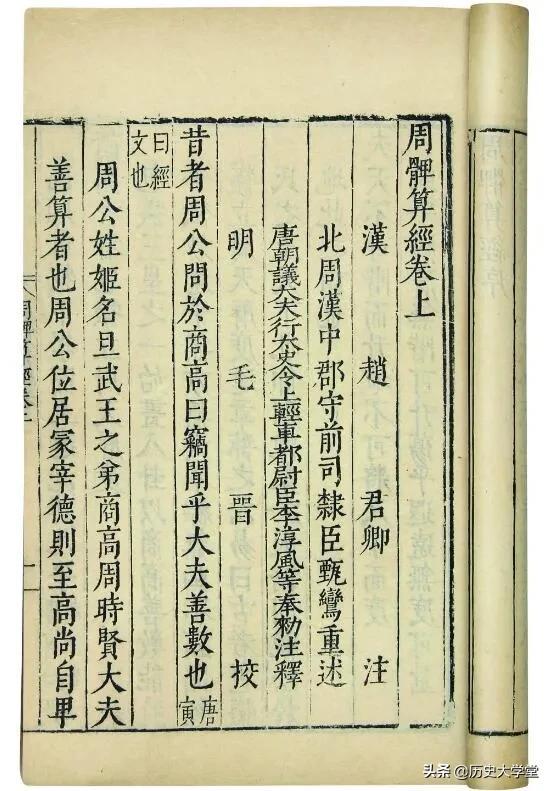 周髀算經卷上
漢 趙 君卿 注
北周漢中郡守前司隸臣甄鸞重述
唐朝議大夫行太史令上輕車都尉臣李淳風等奉勑注釋
明 毛 晉 挍
昔者周公問於商高曰竊聞乎大夫善數也 唐寅
曰經文也
周公姓姬名旦武王之弟商高周時賢大夫
善算者也周公位居冢宰德則至高尚自卑
周髀算經卷上
一
头条 @历史大学堂